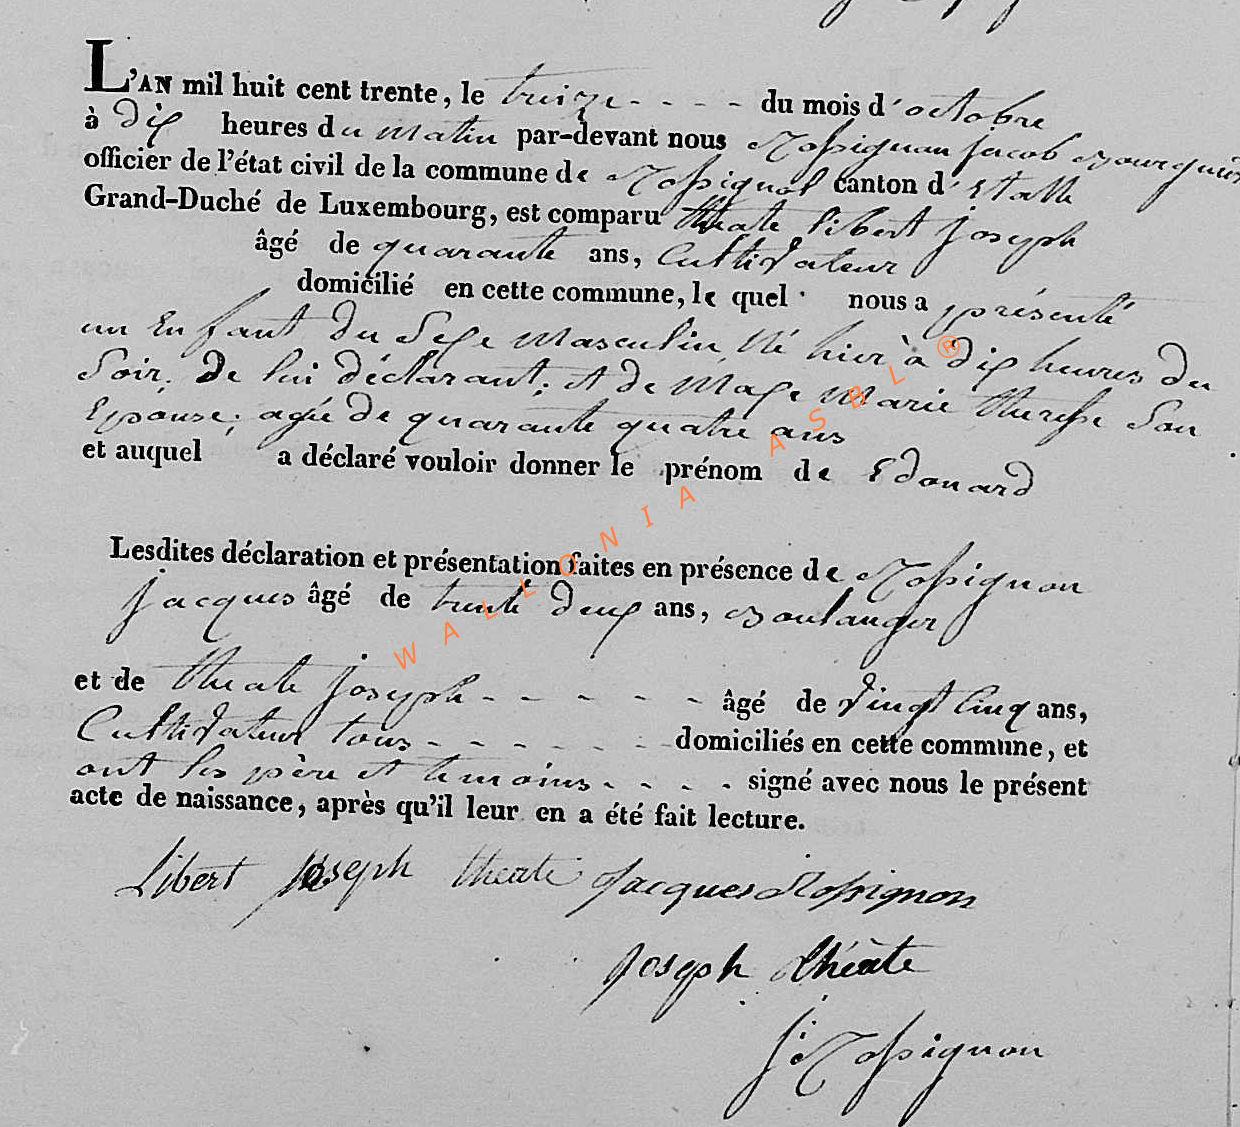 L'AN mil huit cent trente, le treize - - - - du mois d'octobre
à dix heures du matin par-devant nous Rossignon Jacob Bourgmêtre
officier de l'état civil de la commune de Rossignol canton d'Etalle
Grand-Duché de Luxembourg, est comparu théate Libert Joseph
âgé de quarante ans, Cultivateur
domicilié en cette commune, lequel nous a présenté
un Enfant du Sexe Masculin, Né hier à dix heures du
Soir, De lui déclarant, et de Maxe Marie therese Son
Epouse, agée de quarante quatre ans
et auquel a déclaré vouloir donner le prénom de Edouard
Lesdites déclaration et présentation faites en présence de Rossignon
Jacques âgé de trente deux ans, Boulanger
et de théate Joseph - - - - - âgé de vingt Cinq ans,
Cultivateur tous - - - - - - domiciliés en cette commune, et
ont les père et temoins - - - - signé avec nous le présent
acte de naissance, après qu'il leur en a été fait lecture.
Libert Joseph theate Jacques Rossignon
Joseph théate
J: Rossignon
WALLONIA ASBL ®